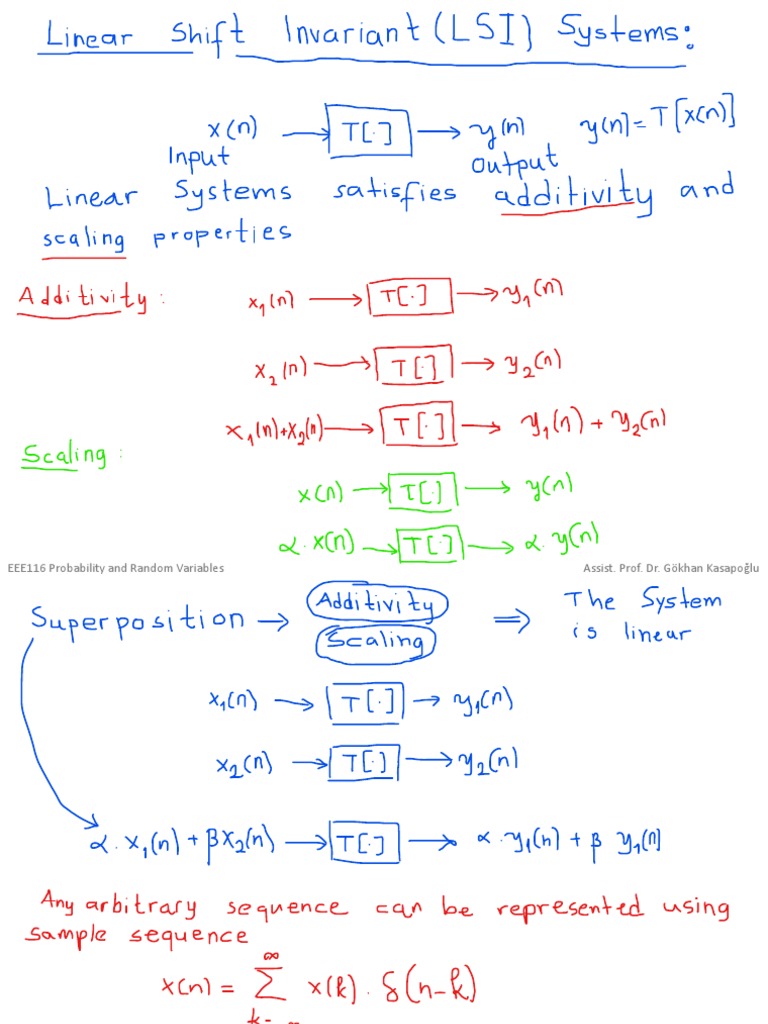 Linear Shift Invariant (LSI) Systems:
x(n) → T[·] → y(n) y(n)=T[x(n)]
Input Output
Linear Systems satisfies additivity and
scaling properties
Additivity: x₁(n) → T[·] → y₁(n)
x₂(n) → T[·] → y₂(n)
x₁(n)+x₂(n) → T[·] → y₁(n) + y₂(n)
Scaling:
x(n) → T[·] → y(n)
α·x(n) → T[·] → α·y(n)
EEE116 Probability and Random Variables Assist. Prof. Dr. Gökhan Kasapoğlu
Superposition → Additivity Scaling ⇒ The System
is linear
x₁(n) → T[·] → y₁(n)
x₂(n) → T[·] → y₂(n)
α·x₁(n) + βx₂(n) → T[·] → α·y₁(n) + β y₁(n)
Any arbitrary sequence can be represented using
sample sequence
x(n) = ∑ x(k)·δ(n-k)
∞